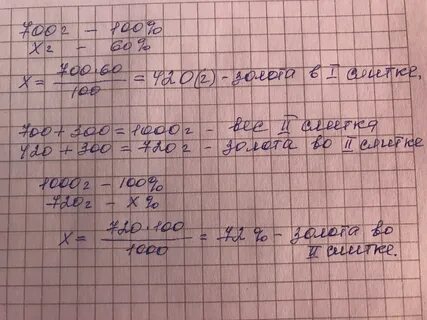 700г – 100%
Xг – 60%
X = 700·60/100 = 420(г) – золота в I слитке,
700 + 300 = 1000г – вес II слитка
420 + 300 = 720г – золота во II слитке
1000г – 100%
720г – X%
X = 720·100/1000 = 72% – золота во
II слитке.